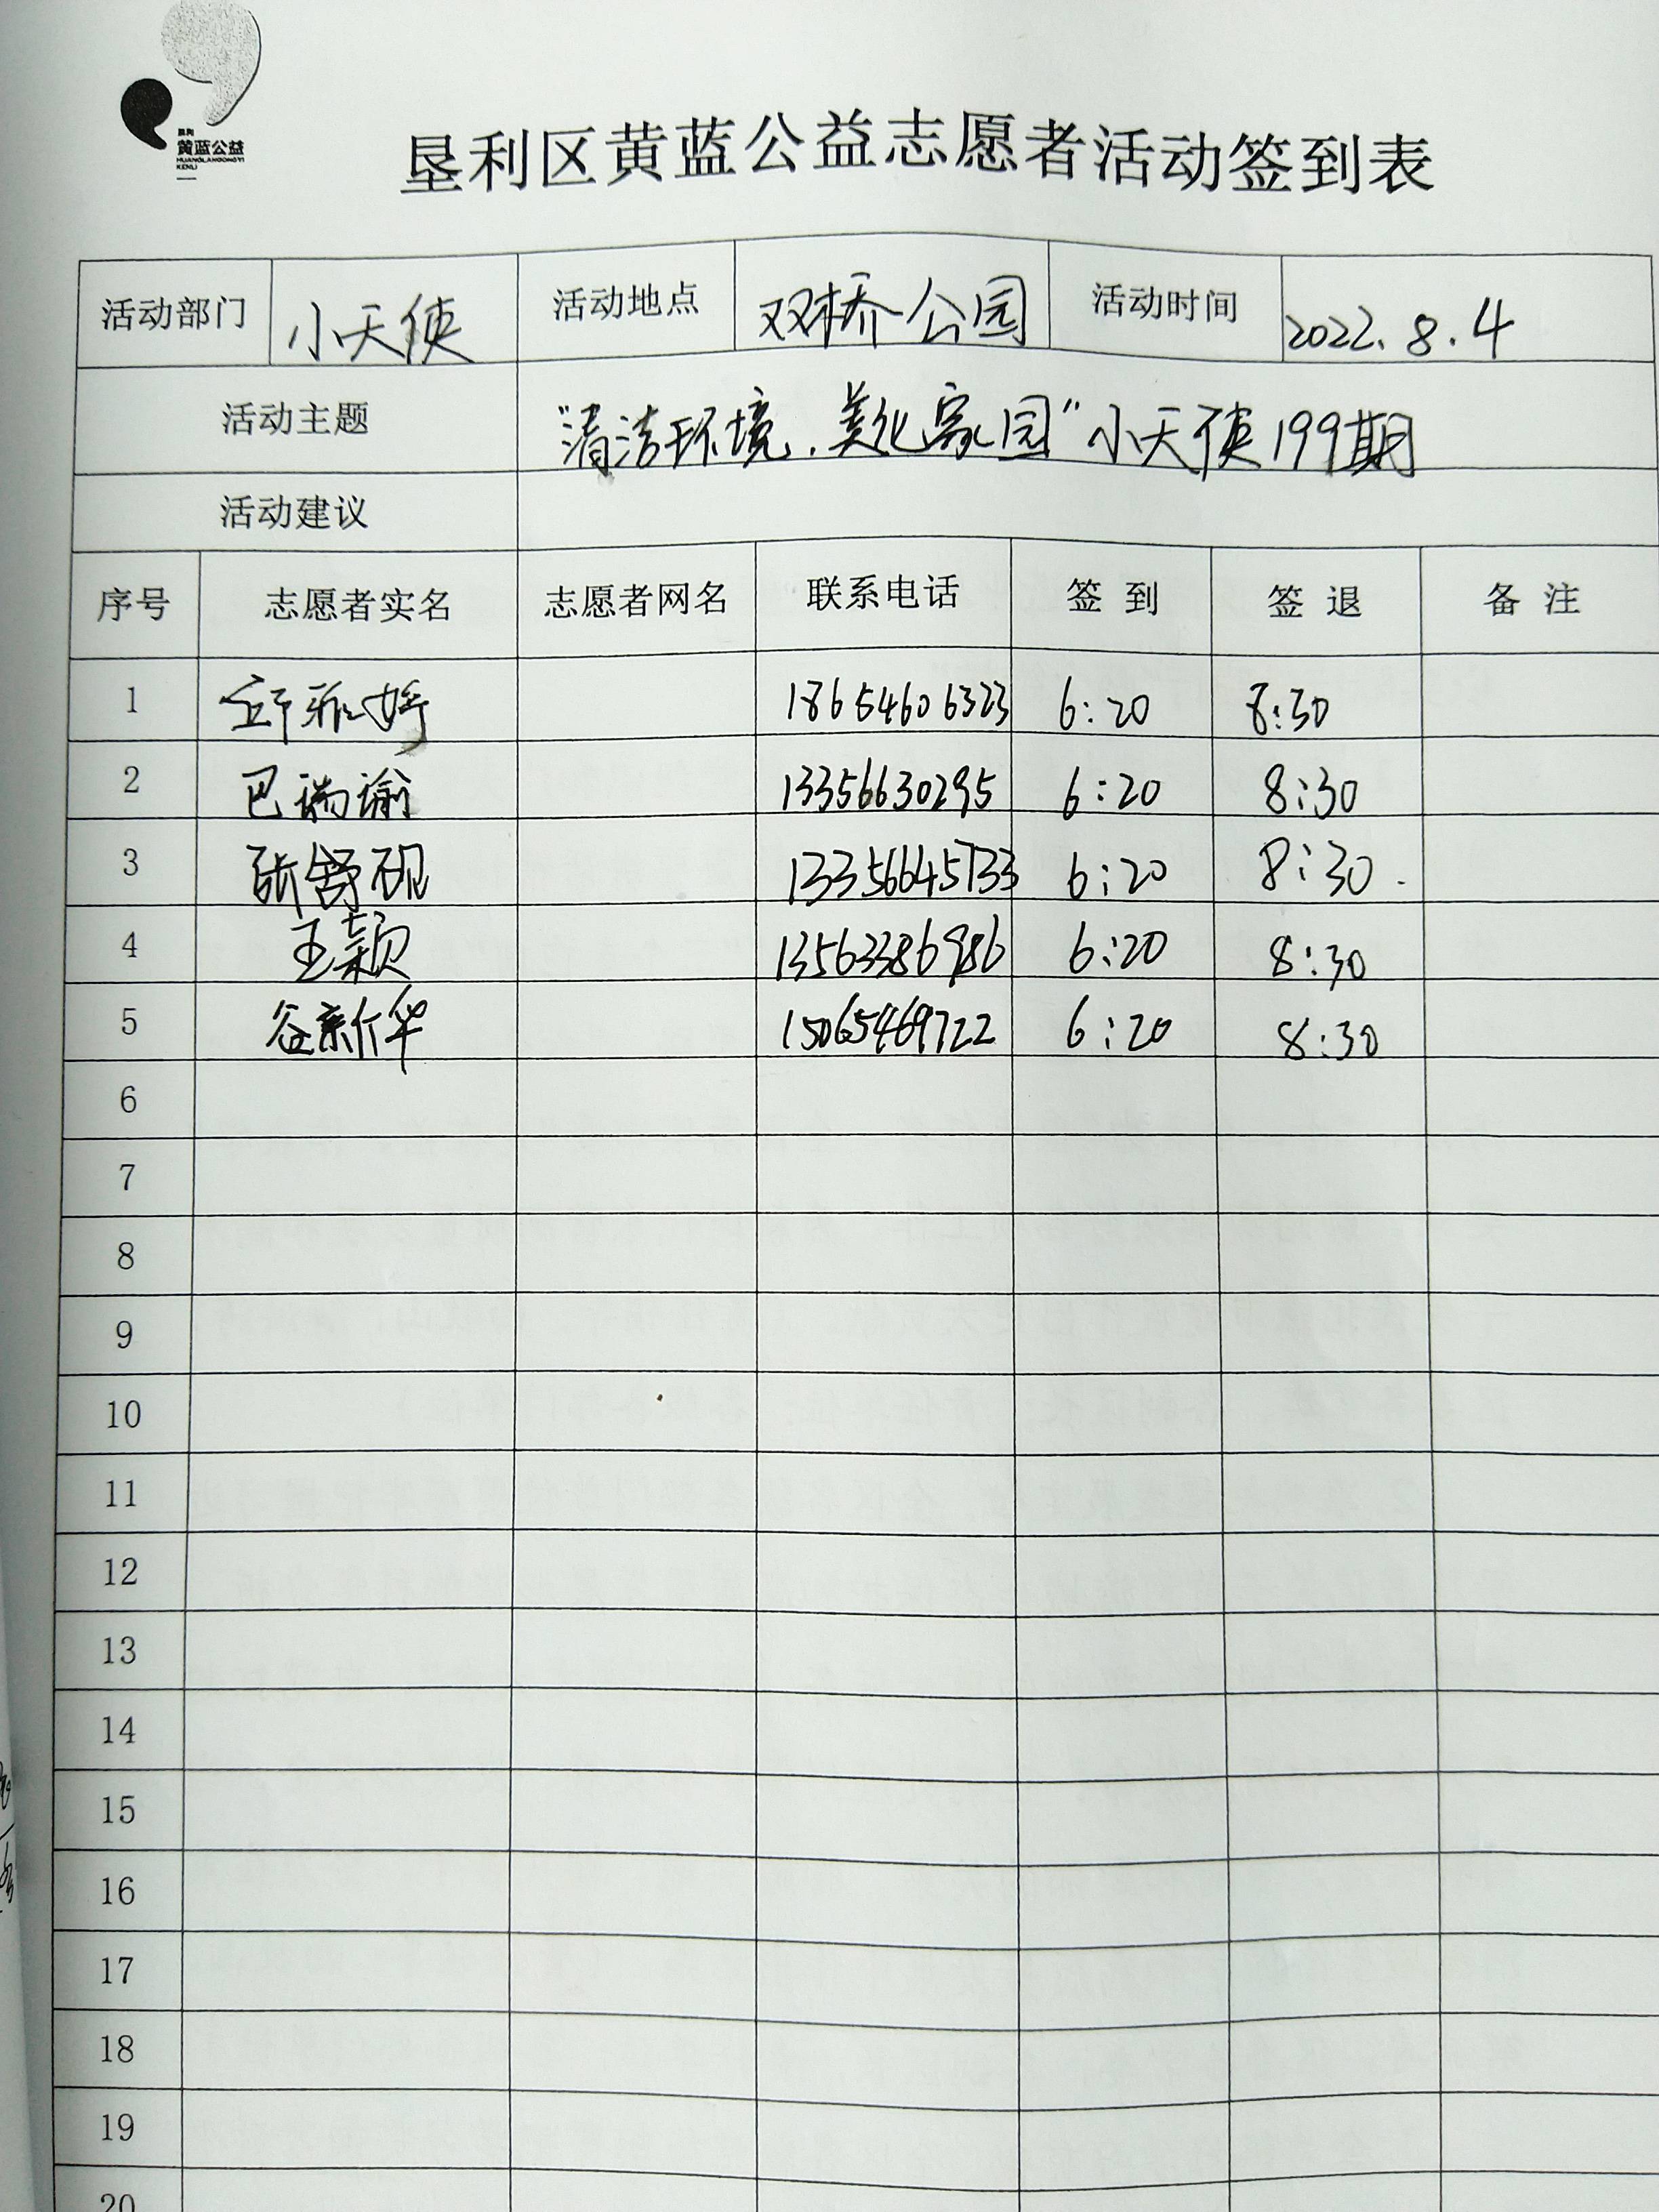 垦利
黄蓝公益
HUANGLANGONGYI
KENLI
垦利区黄蓝公益志愿者活动签到表
活动部门 小天使 活动地点 双桥公园 活动时间 2022.8.4
活动主题 "清洁环境.美化家园"小天使199期
活动建议
序号 志愿者实名 志愿者网名 联系电话 签到 签退 备注
1 雅婷 18654606323 6:20 8:30
2 巴瑞谕 13356630295 6:20 8:30
3 张舒砚 13356645733 6:20 8:30
4 王颖 13563386986 6:20 8:30
5 谷新华 15065469722 6:20 8:30
6
7
8
9
10
11
12
13
14
15
16
17
18
19
20